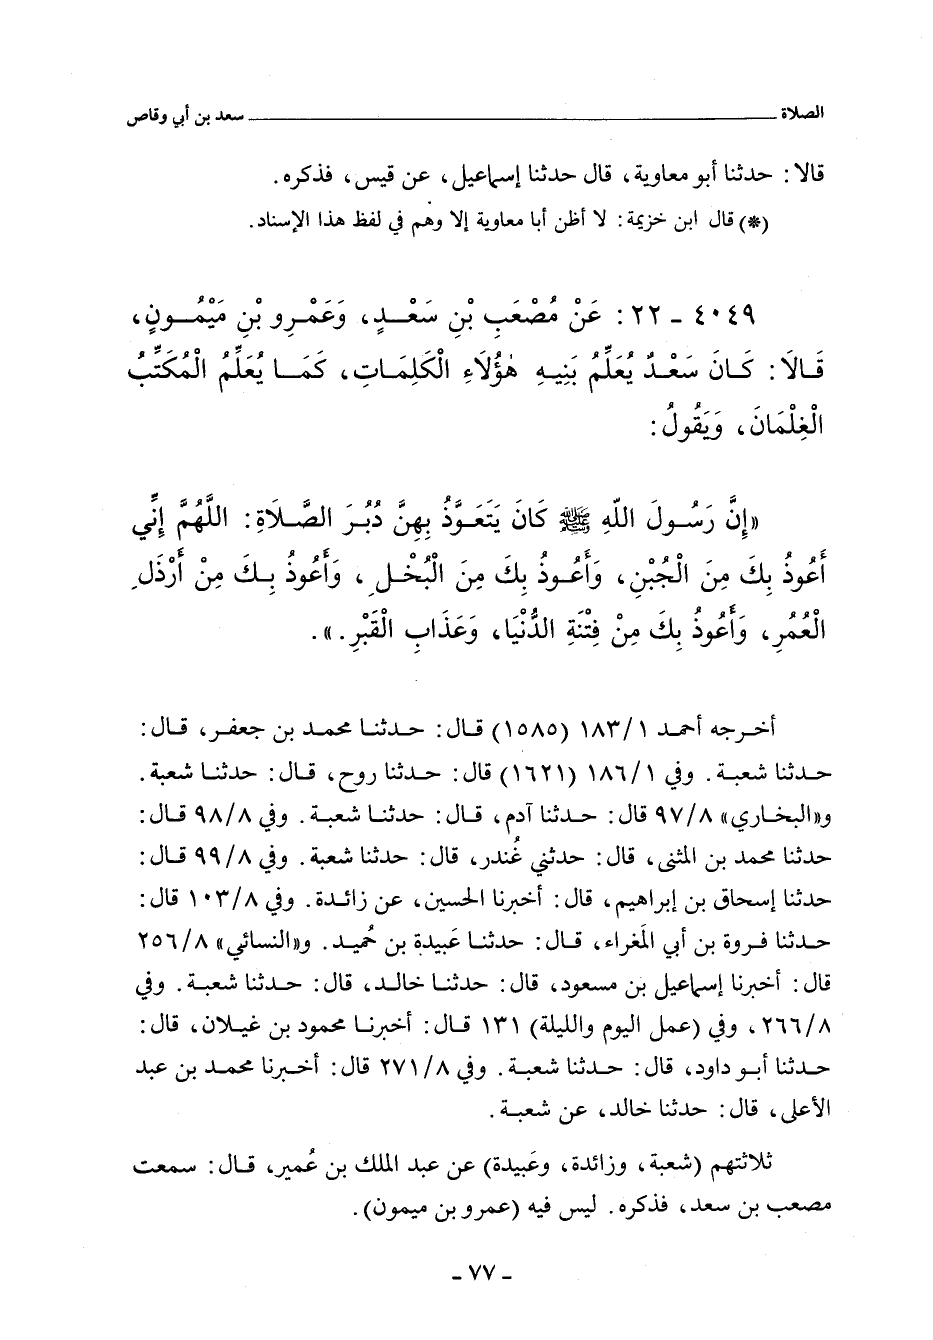 الصلاة ــــــــــــــــــــ سعد بن أبي وقاص
قالا: حدثنا أبو معاوية، قال حدثنا إسماعيل، عن قيس، فذكره.
(*) قال ابن خزيمة: لا أظن أبا معاوية إلا وهم في لفظ هذا الإسناد.
٤٠٤٩ - ٢٢: عَنْ مُصْعَبِ بْنِ سَعْدٍ، وَعَمْرِو بْنِ مَيْمُونٍ،
قَالَا: كَانَ سَعْدٌ يُعَلِّمُ بَنِيهِ هٰؤُلَاءِ الْكَلِمَاتِ، كَمَا يُعَلِّمُ الْمُكَتِّبُ
الْغِلْمَانَ، وَيَقُولُ:
«إِنَّ رَسُولَ اللّهِ ﷺ كَانَ يَتَعَوَّذُ بِهِنَّ دُبُرَ الصَّلَاةِ: اللَّهُمَّ إِنِّي
أَعُوذُ بِكَ مِنَ الْجُبْنِ، وَأَعُوذُ بِكَ مِنَ الْبُخْلِ، وَأَعُوذُ بِكَ مِنْ أَرْذَلِ
الْعُمُرِ، وَأَعُوذُ بِكَ مِنْ فِتْنَةِ الدُّنْيَا، وَعَذَابِ الْقَبْرِ.».
أخرجه أحمد ١/١٨٣ (١٥٨٥) قال: حدثنا محمد بن جعفر، قال:
حدثنا شعبة. وفي ١/١٨٦ (١٦٢١) قال: حدثنا روح، قال: حدثنا شعبة.
و«البخاري» ٨/٩٧ قال: حدثنا آدم، قال: حدثنا شعبة. وفي ٨/٩٨ قال:
حدثنا محمد بن المثنى، قال: حدثني غُندر، قال: حدثنا شعبة. وفي ٨/٩٩ قال:
حدثنا إسحاق بن إبراهيم، قال: أخبرنا الحسين، عن زائدة. وفي ٨/١٠٣ قال:
حدثنا فروة بن أبي المَغراء، قال: حدثنا عَبيدة بن حُميد. و«النسائي» ٨/٢٥٦
قال: أخبرنا إسماعيل بن مسعود، قال: حدثنا خالد، قال: حدثنا شعبة. وفي
٨/٢٦٦، وفي (عمل اليوم والليلة) ١٣١ قال: أخبرنا محمود بن غيلان، قال:
حدثنا أبو داود، قال: حدثنا شعبة. وفي ٨/٢٧١ قال: أخبرنا محمد بن عبد
الأعلى، قال: حدثنا خالد، عن شعبة.
ثلاثتهم (شعبة، وزائدة، وعَبيدة) عن عبد الملك بن عُمير، قال: سمعت
مصعب بن سعد، فذكره. ليس فيه (عمرو بن ميمون).
- ٧٧ -